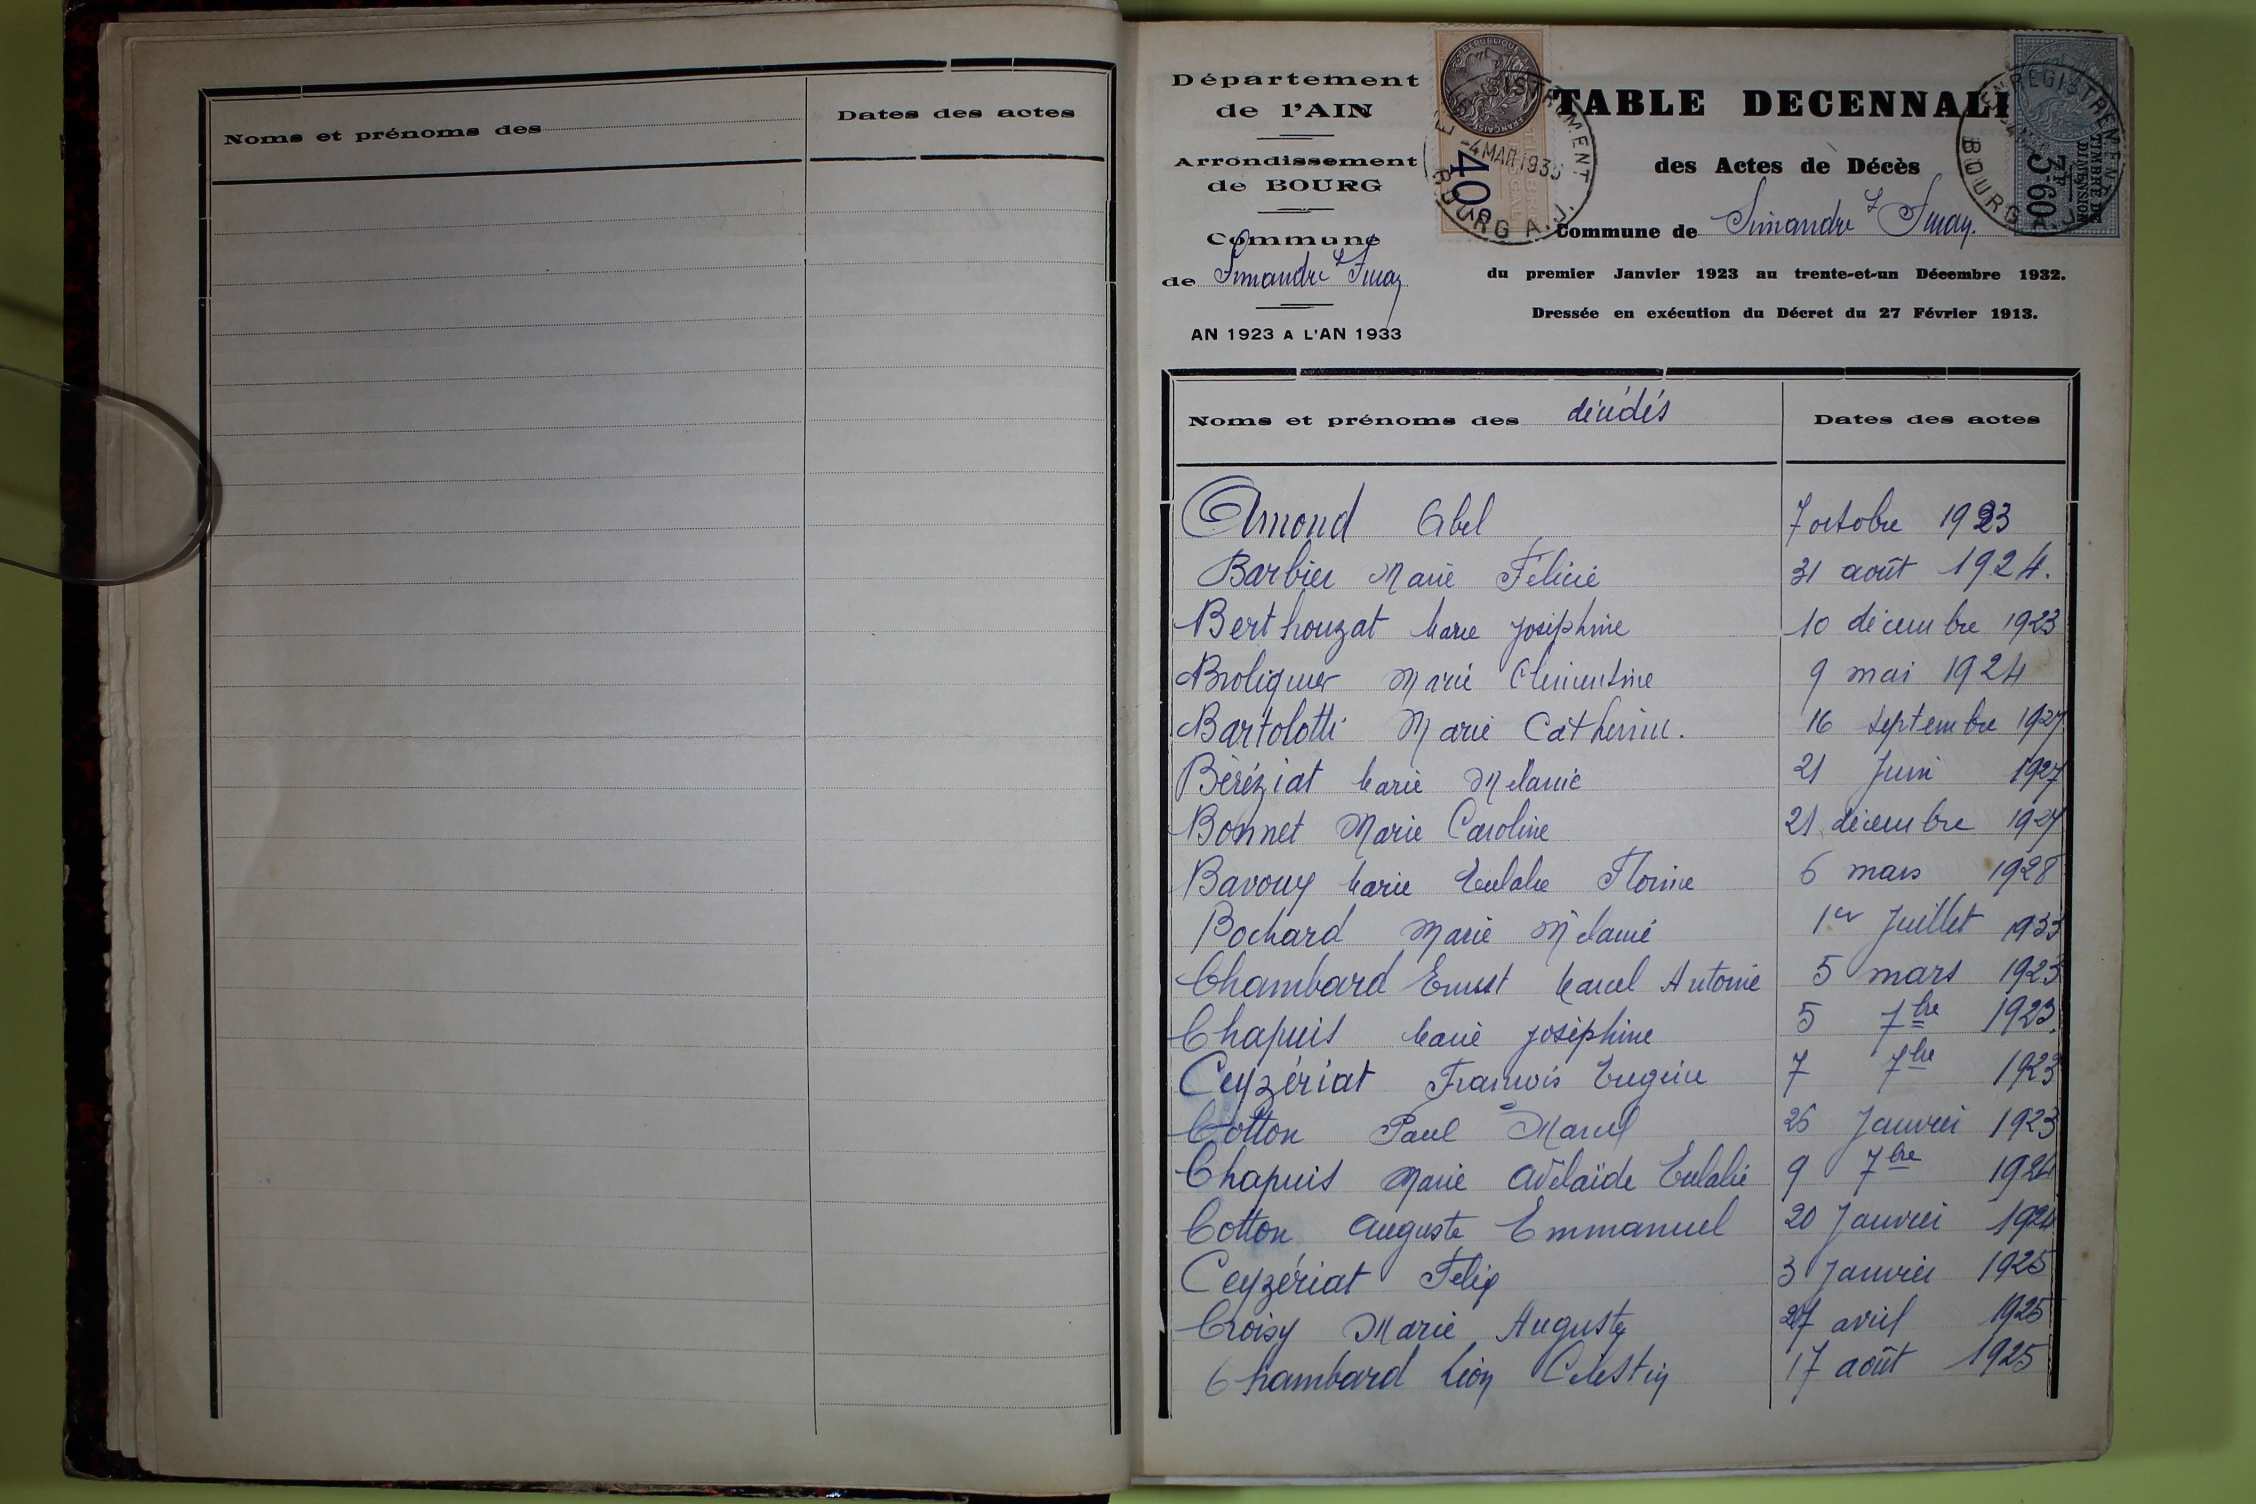 Noms et prénoms des
Dates des actes
Département
de l'AIN
Arrondissement
de BOURG
Commune
de Simandre s/ Suran
AN 1923 A L'AN 1933
TABLE DECENNALE
des Actes de Décès
Commune de Simandre s/ Suran.
du premier Janvier 1923 au trente-et-un Décembre 1932.
Dressée en exécution du Décret du 27 Février 1913.
ENREGISTREMENT
-4 MAR 1935
BOURG A.J.
40c
ENREGISTREMENT
BOURG A.J.
TIMBRE DE
DIMENSION
3F60
Noms et prénoms des décédés
Dates des actes
Amond Abel 7 octobre 1923
Barbier Marie Félicie 31 août 1924.
Berthouzat Marie Joséphine 10 décembre 1923
Broliquier Marie Clémentine 9 mai 1924
Bartolotti Marie Catherine. 16 septembre 1927
Béréziat Marie Mélanie 21 Juin 1927
Bonnet Marie Caroline 21 décembre 1927
Bavoux Marie Eulalie Florine 6 mars 1928
Bochard Marie Mélanie 1er Juillet 1933
Chambard Ernest Marcel Antoine 5 mars 1923
Chapuis Marie Joséphine 5 7bre 1923.
Ceyzériat François Eugène 7 7bre 1923
Cotton Paul Marcel 26 Janvier 1923
Chapuis Marie Adélaïde Eulalie 9 7bre 1924
Cotton Auguste Emmanuel 20 Janvier 1924
Ceyzériat Félix 3 Janvier 1925
Croisy Marie Auguste 27 avril 1925
Chambard Léon Célestin 17 août 1925